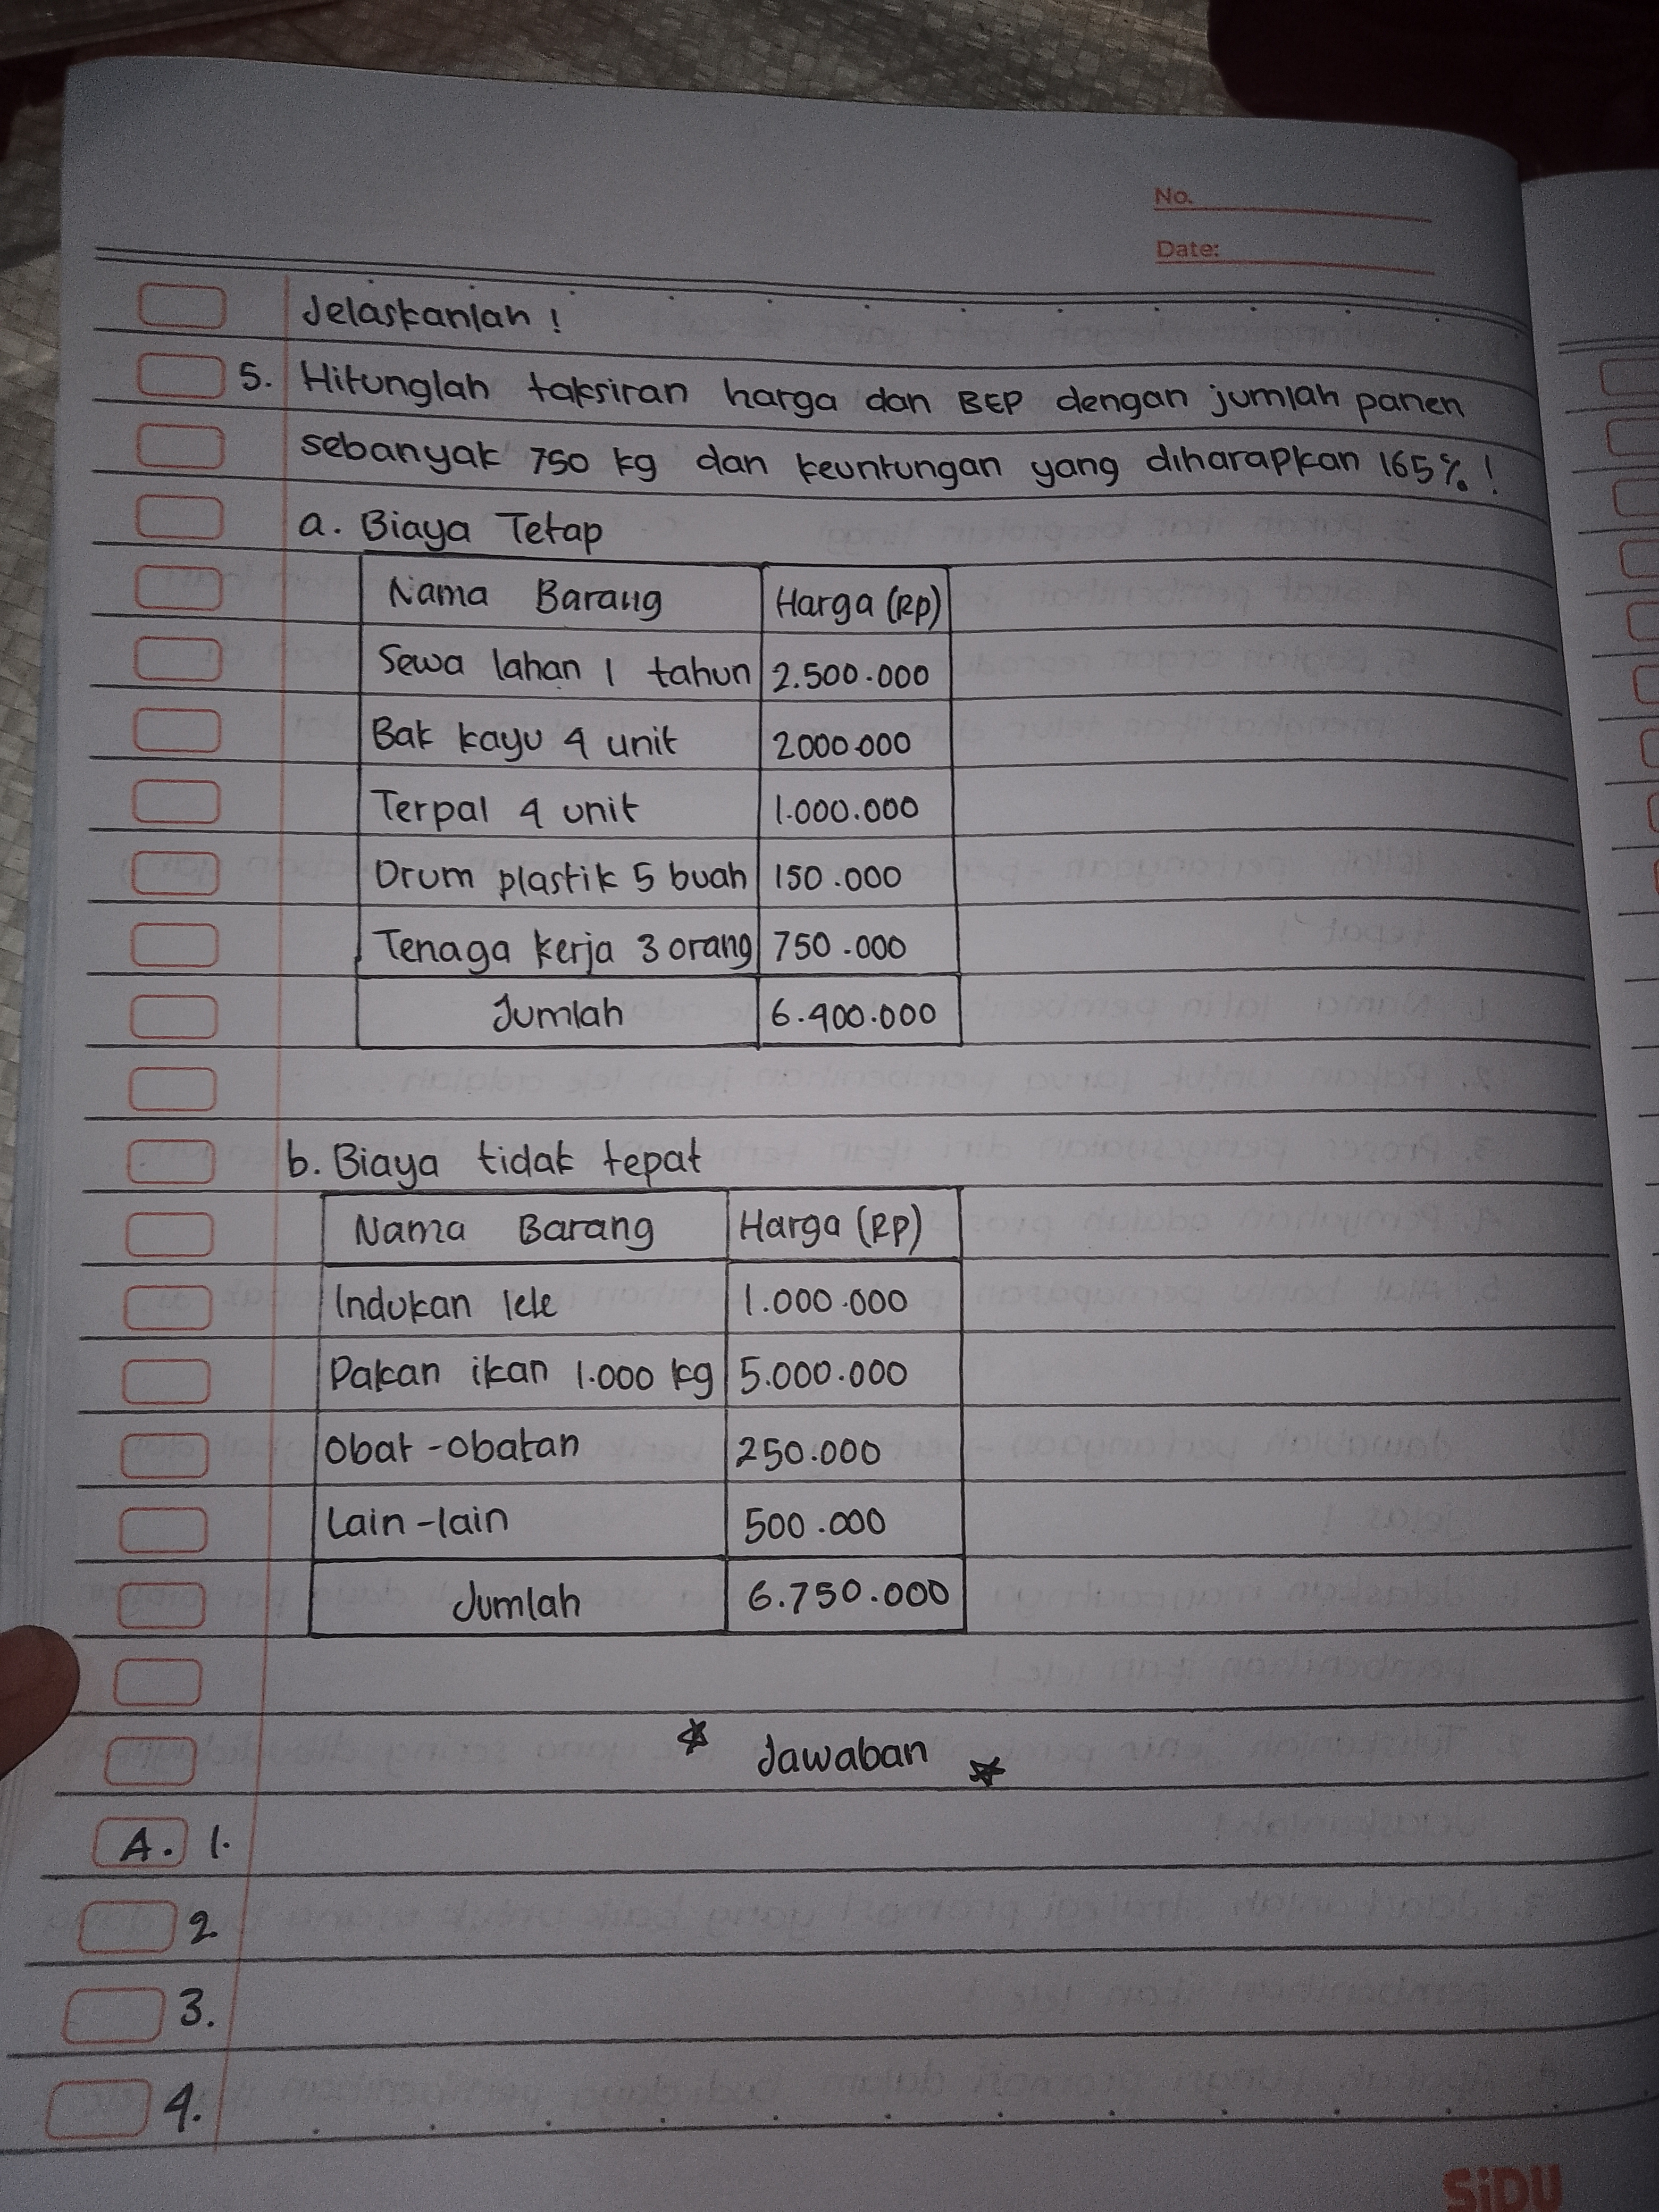 No.
Date:
Jelaskanlah !
5. Hitunglah taksiran harga dan BEP dengan jumlah panen
sebanyak 750 kg dan keuntungan yang diharapkan 165% !
a. Biaya Tetap
Nama Barang Harga (Rp)
Sewa lahan 1 tahun 2.500.000
Bak kayu 4 unit 2000.000
Terpal 4 unit 1.000.000
Drum plastik 5 buah 150.000
Tenaga kerja 3 orang 750.000
Jumlah 6.400.000
b. Biaya tidak tepat
Nama Barang Harga (Rp)
Indukan lele 1.000.000
Pakan ikan 1.000 kg 5.000.000
Obat-obatan 250.000
Lain-lain 500.000
Jumlah 6.750.000
Jawaban
A. 1.
2.
3.
4.
SiDU